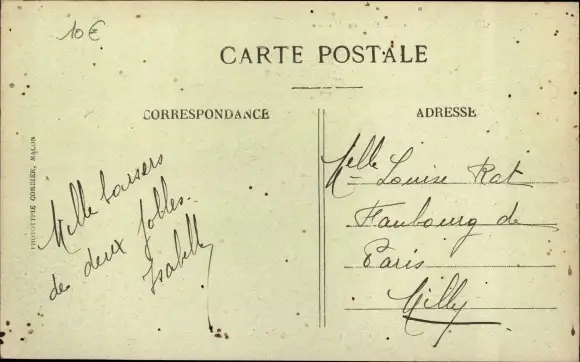 10€
CARTE POSTALE
CORRESPONDANCE
ADRESSE
PHOTOTYPIE COMBIER, MACON
Mille baisers
de deux folles.
Isabelle
Melle Louise Rat
Faubourg de
Paris
Milly